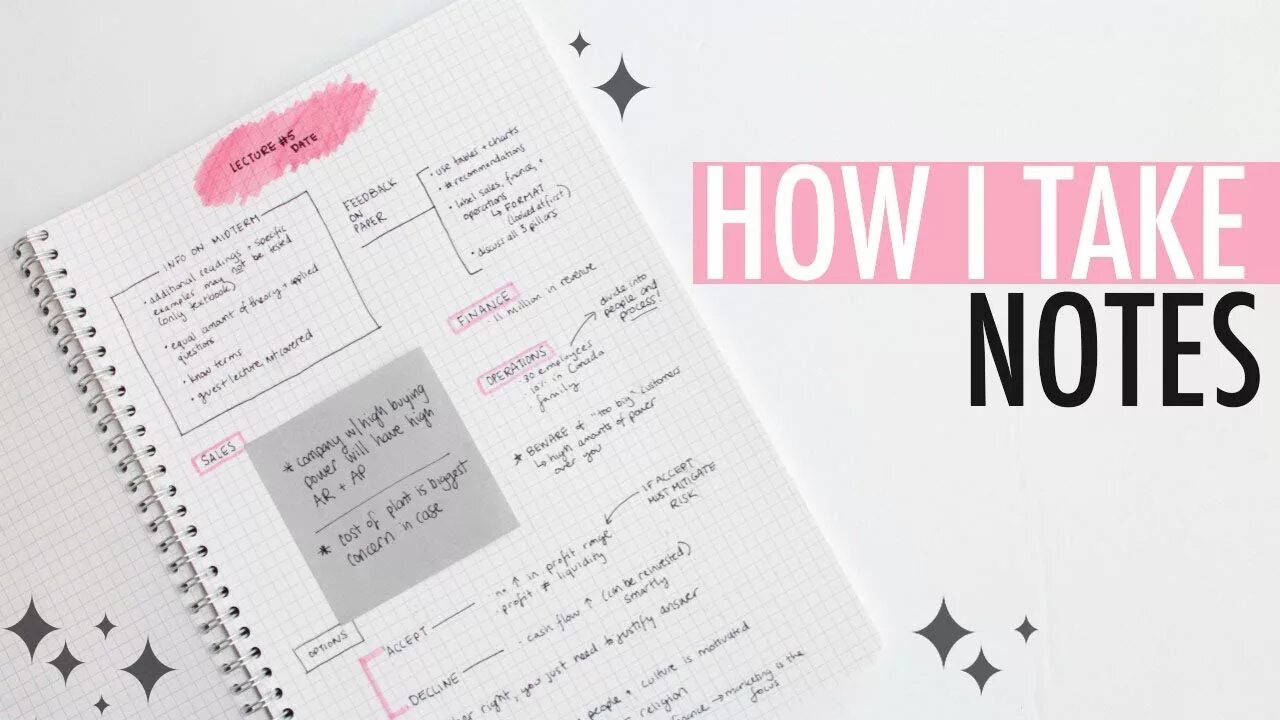 HOW I TAKE
NOTES
LECTURE #5
DATE
INFO ON MIDTERM
• additional readings + specific
examples may not be tested
(only textbook)
• equal amount of theory + applied
questions
• know terms
• guest lecture not covered
FEEDBACK
ON
PAPER
• use tables + charts
• # recommendations
• label sales, finance, +
operations
↳ FORMAT
(looked at first)
• discuss all 3 pillars
FINANCE
• 11 million in revenue
OPERATIONS
• 30 employees
• 10% in Canada
• family
divide into
people and
process!
* BEWARE of "too big" customers
↳ high amounts of power
over you
SALES
* company w/ high buying
power will have high
AR + AP
* cost of plant is biggest
concern in case
IF ACCEPT
MUST MITIGATE
RISK
OPTIONS
ACCEPT
• no ↑ in profit range
• profit ≠ liquidity
DECLINE
- cash flow ↑ (can be reinvested)
smartly
right, you just need to justify answer
people + culture is motivated
religion
finance → marketing is the
focus